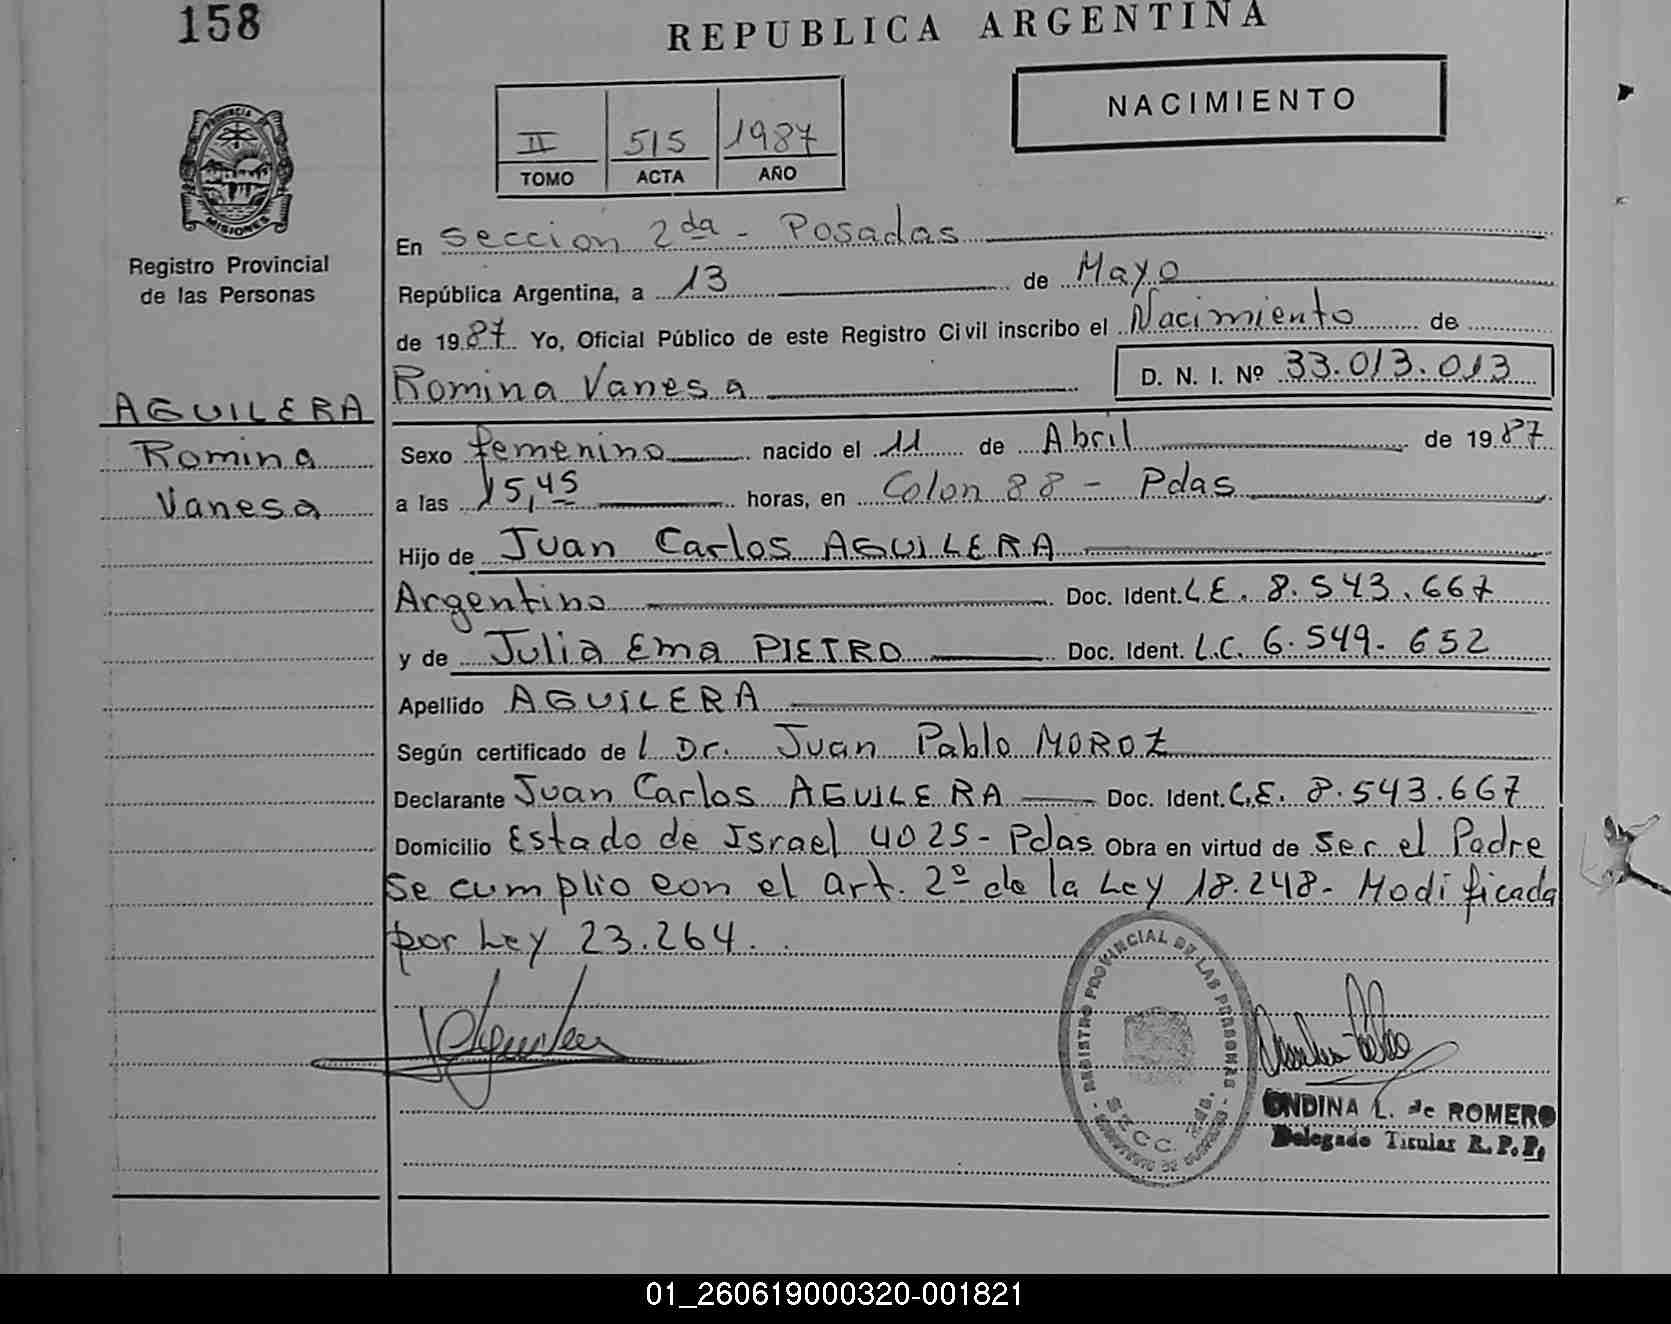 158
REPUBLICA ARGENTINA
NACIMIENTO
II 515 1987
TOMO ACTA AÑO
PROVINCIA DE MISIONES
Registro Provincial
de las Personas
En Sección 2da - Posadas
República Argentina, a 13 de Mayo
de 1987 Yo, Oficial Público de este Registro Civil inscribo el Nacimiento de
Romina Vanesa D. N. I. Nº 33.013.013
AGUILERA
Romina
Vanesa
Sexo femenino nacido el 11 de Abril de 1987
a las 15,45 horas, en Colon 88 - Pdas
Hijo de Juan Carlos AGUILERA
Argentino Doc. Ident. L.E. 8.543.667
y de Julia Ema PIETRO Doc. Ident. L.C. 6.549.652
Apellido AGUILERA
Según certificado de l Dr. Juan Pablo MOROZ
Declarante Juan Carlos AGUILERA Doc. Ident. L.E. 8.543.667
Domicilio Estado de Israel 4025 - Pdas Obra en virtud de Ser el Padre
Se cumplio con el art. 2º de la Ley 18.248 - Modificada
por Ley 23.264.
REGISTRO PROVINCIAL DE LAS PERSONAS
SECC. 2da.
ONDINA L. de ROMERO
Delegado Titular R. P. P.
01_260619000320-001821